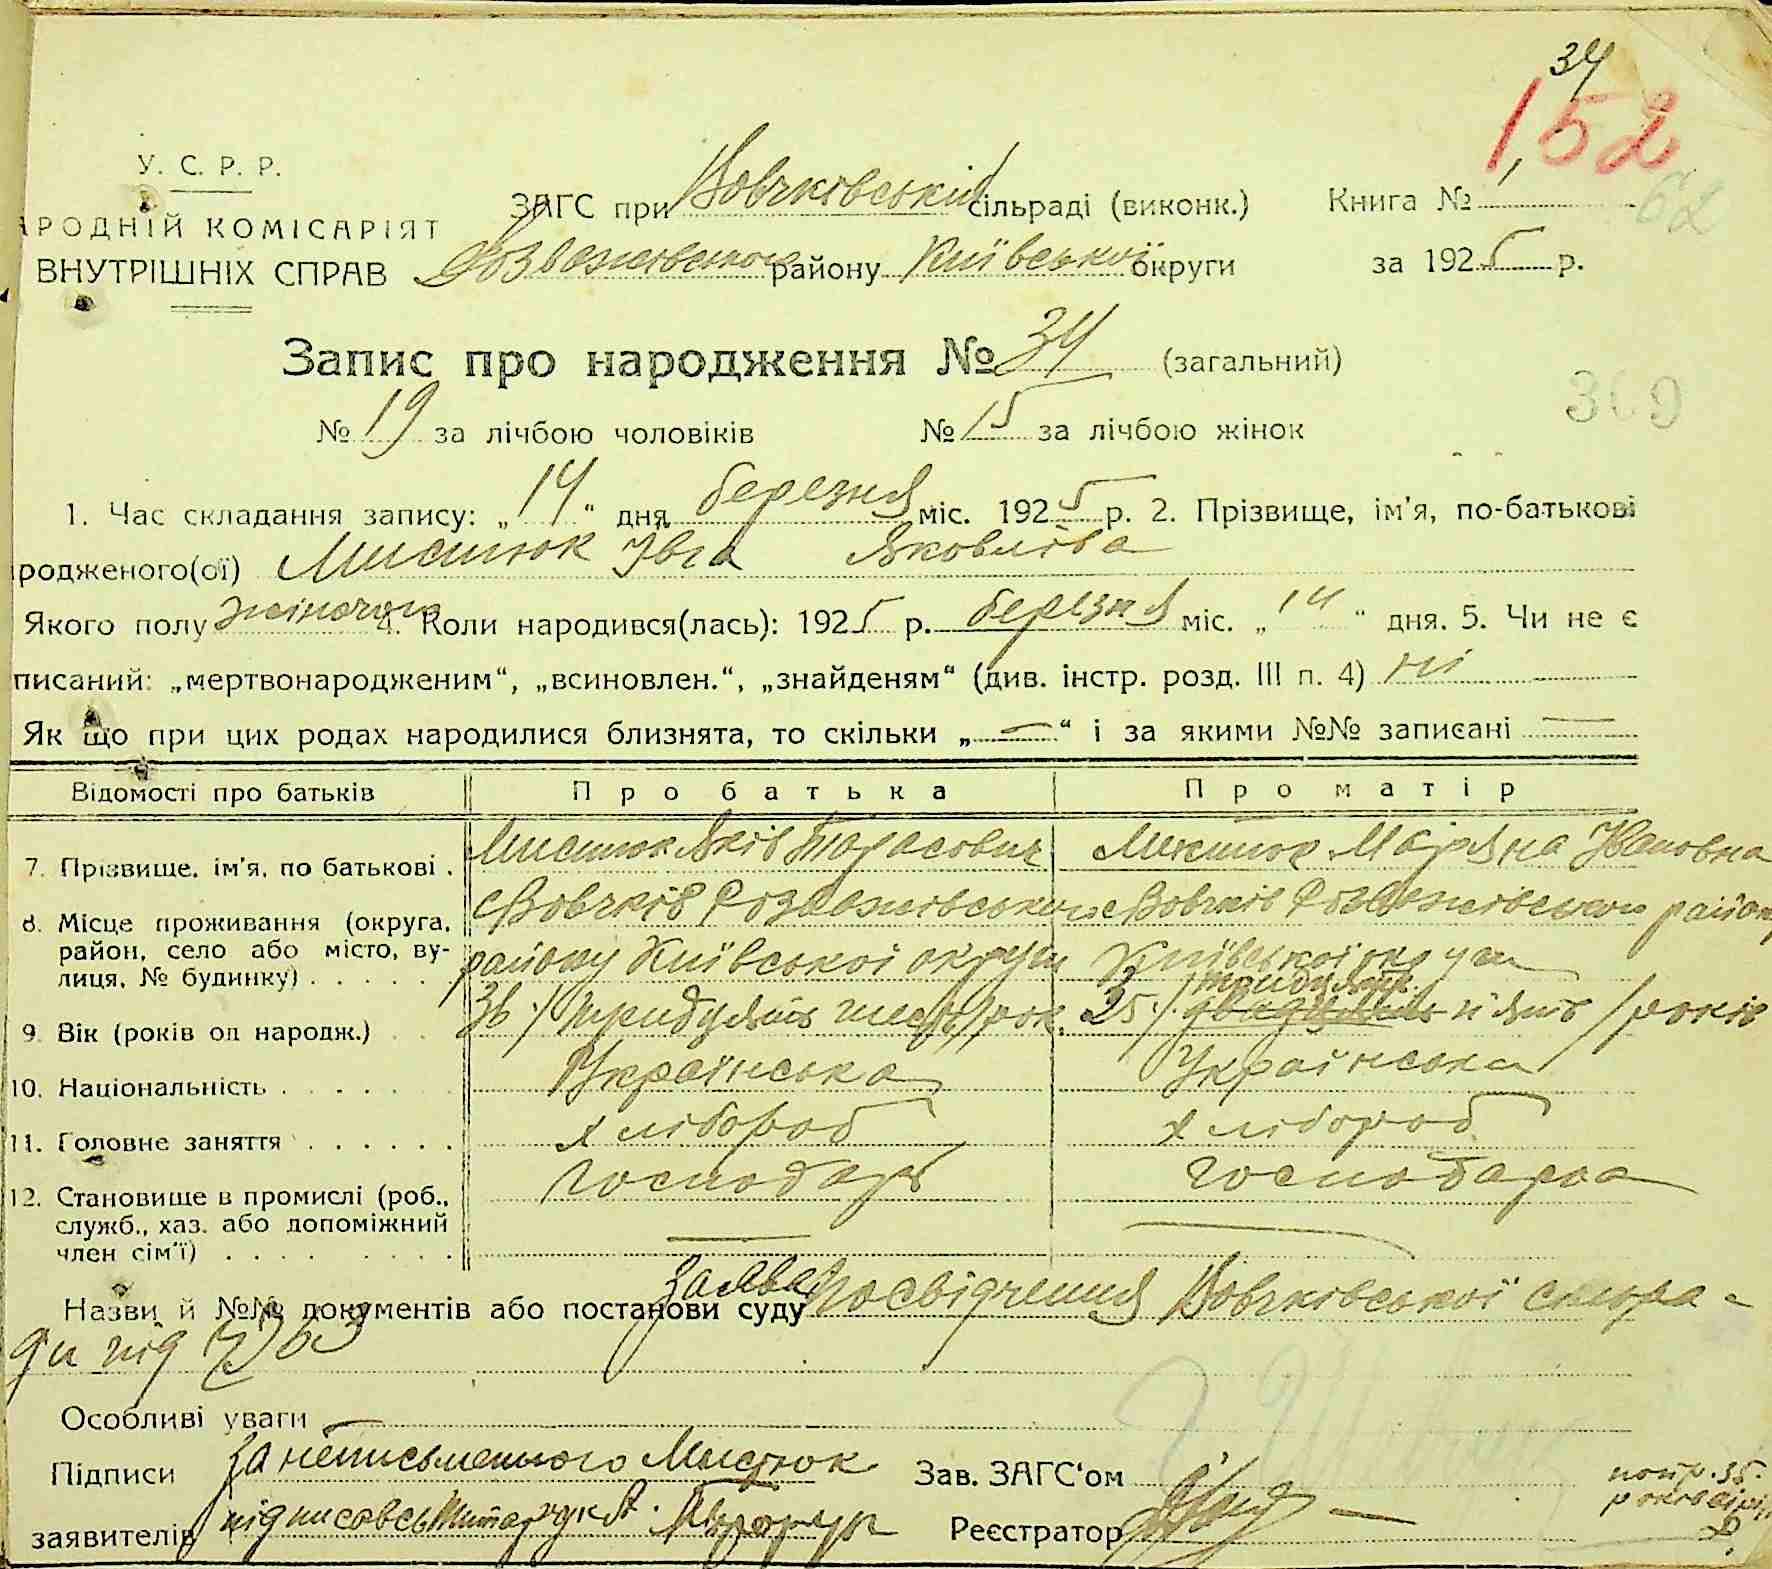 34
152
У. С. Р. Р.
62
ЗАГС при Вовчківській сільраді (виконк.) Книга № 1
РОДНІЙ КОМІСАРІЯТ
ВНУТРІШНІХ СПРАВ Розважівського району Київської округи за 1925 р.
Запис про народження № 34 (загальний)
309
№ 19 за лічбою чоловіків № 15 за лічбою жінок
1. Час складання запису: „14“ дня березня міс. 1925 р. 2. Прізвище, ім'я, по-батькові
родженого(ої) Мистюк Івга Яковліва
Якого полу жіночого 4. Коли народився(лась): 1925 р. березня міс. „14“ дня. 5. Чи не є
писаний: „мертвонародженим“, „всиновлен.“, „знайденям“ (див. інстр. розд. III п. 4) ні
Як що при цих родах народилися близнята, то скільки „—“ і за якими №№ записані —
Відомості про батьків Про батька Про матір
7. Прізвище, ім'я, по батькові . Мистюк Яків Тарасович Мистюк Мар'яна Івановна
8. Місце проживання (округа, с Вовчків Розважівського с Вовчків Розважівського району
район, село або місто, ву-
лиця, № будинку) . . . . . району Київської округи Київської округи
тридцять
9. Вік (років од народж.) . . 36 / тридцять шість / рок. 35 / двадцять пять / років
10. Національність . . . . . . Українська Українська
11. Головне заняття . . . . . . хлібороб хлібороб
12. Становище в промислі (роб., господарь господарка
служб., хаз. або допоміжний
член сім'ї) . . . . . . . —
Назви й №№ документів або постанови суду заява посвідчення Вовчківської сільра-
ди під
Особливі уваги —
Підписи за неписьменного Мистюк Зав. ЗАГС'ом
заявителів підписавсь Реєстратор
попр. 35.
років вірн